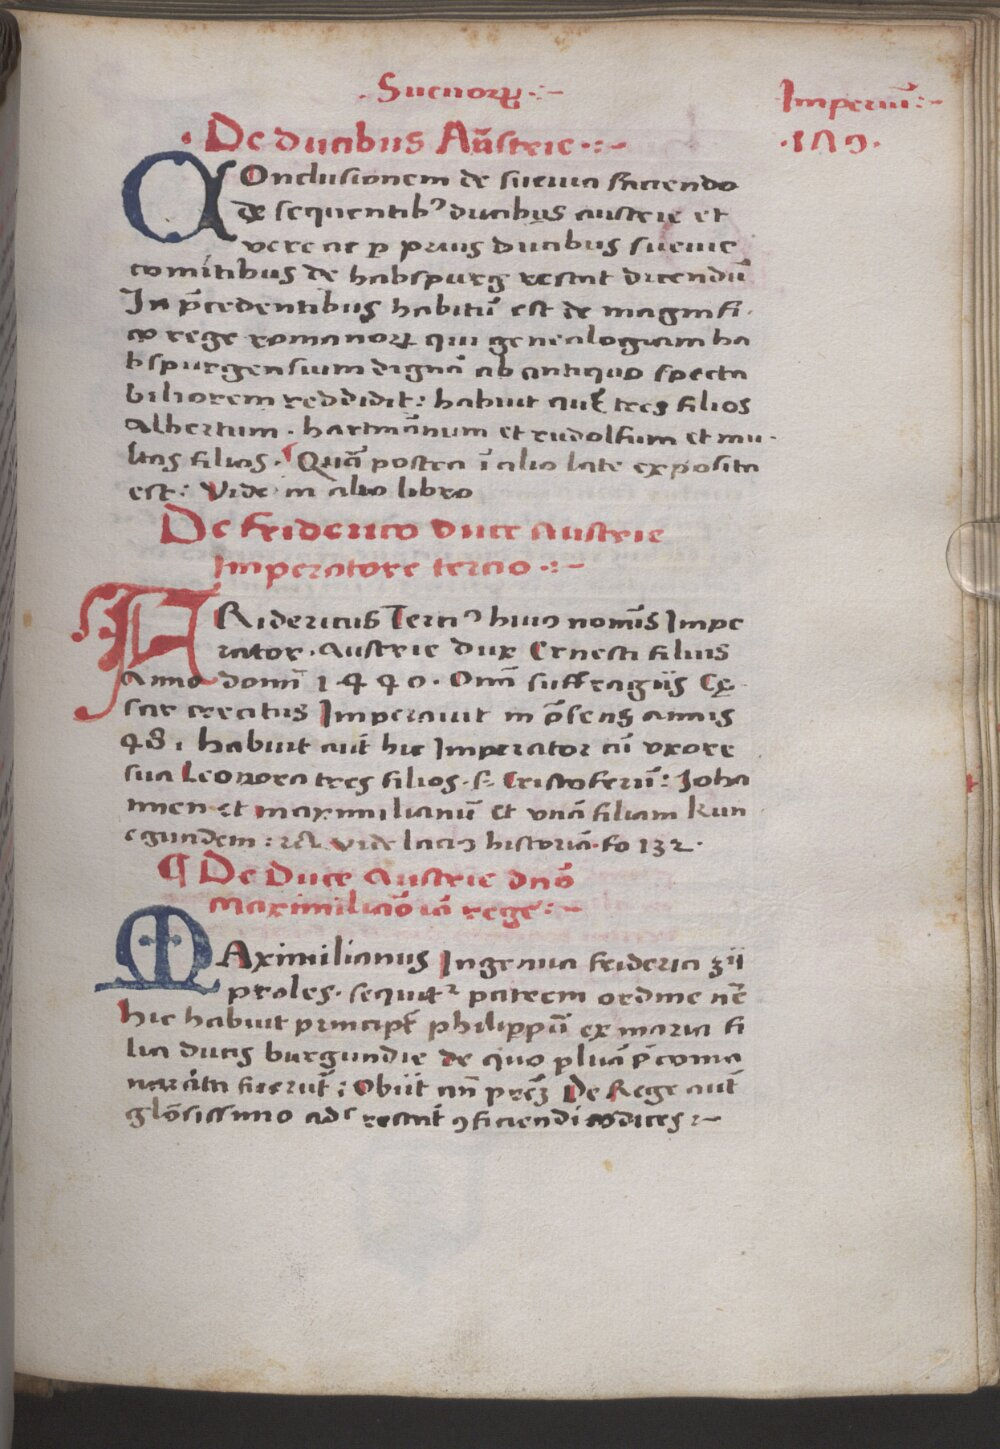 . Sueuorꝝ :~
Imperiū :~
· De ducibus Aūstrie ·:~
· 179 ·
COnclusionem de sueuia faciendo
de sequentibꝰ ducibus austrie et
vere ac p prius ducibus sueuie
comitibus de habspurg restat dicendū
In p̄cedentibus habitū est de magnifi·
co rege romanorꝝ qui genealogiam ha
bspurgensium dignā ab antiquo specta
biliorem reddidit : habuit qui tres filios
Albertum . hartmānum et rudolfum et mu·
ltas filias . Quā postea ī alio late exposita
est : Vide in alio libro
De friderico duce austrie
Imperatore tercio ·:~
FRidericus Terciꝰ huiꝰ nomīs Impe
rator . Austrie dux Ernesti filius
Anno domī 1440 . Omī suffragijs Cę
sar creatus Imperauit in p̄sens annis
48 . habuit aūt hic Imperator cū vxore
sua Leonora tres filios . s. Cristoferū : Joha
nnen et maximilianū et vnā filiam Kun
egundem : Vide laciꝰ historiā . fo 132 .
¶ De Duce Austrie dnō
Maximiliāo iā rege :~
MAximilianus Ingenua friderici ziī
proles . sequitᷣ patrem ordine nē
hic habuit principē philippū ex maria fi
lia ducis burgundie de quo pluā p̄ coma
narrata fuerūt : Obijt añ prēz De Rege aūt
glōsissimo adᷤ restat ꝯficiendi codices :~